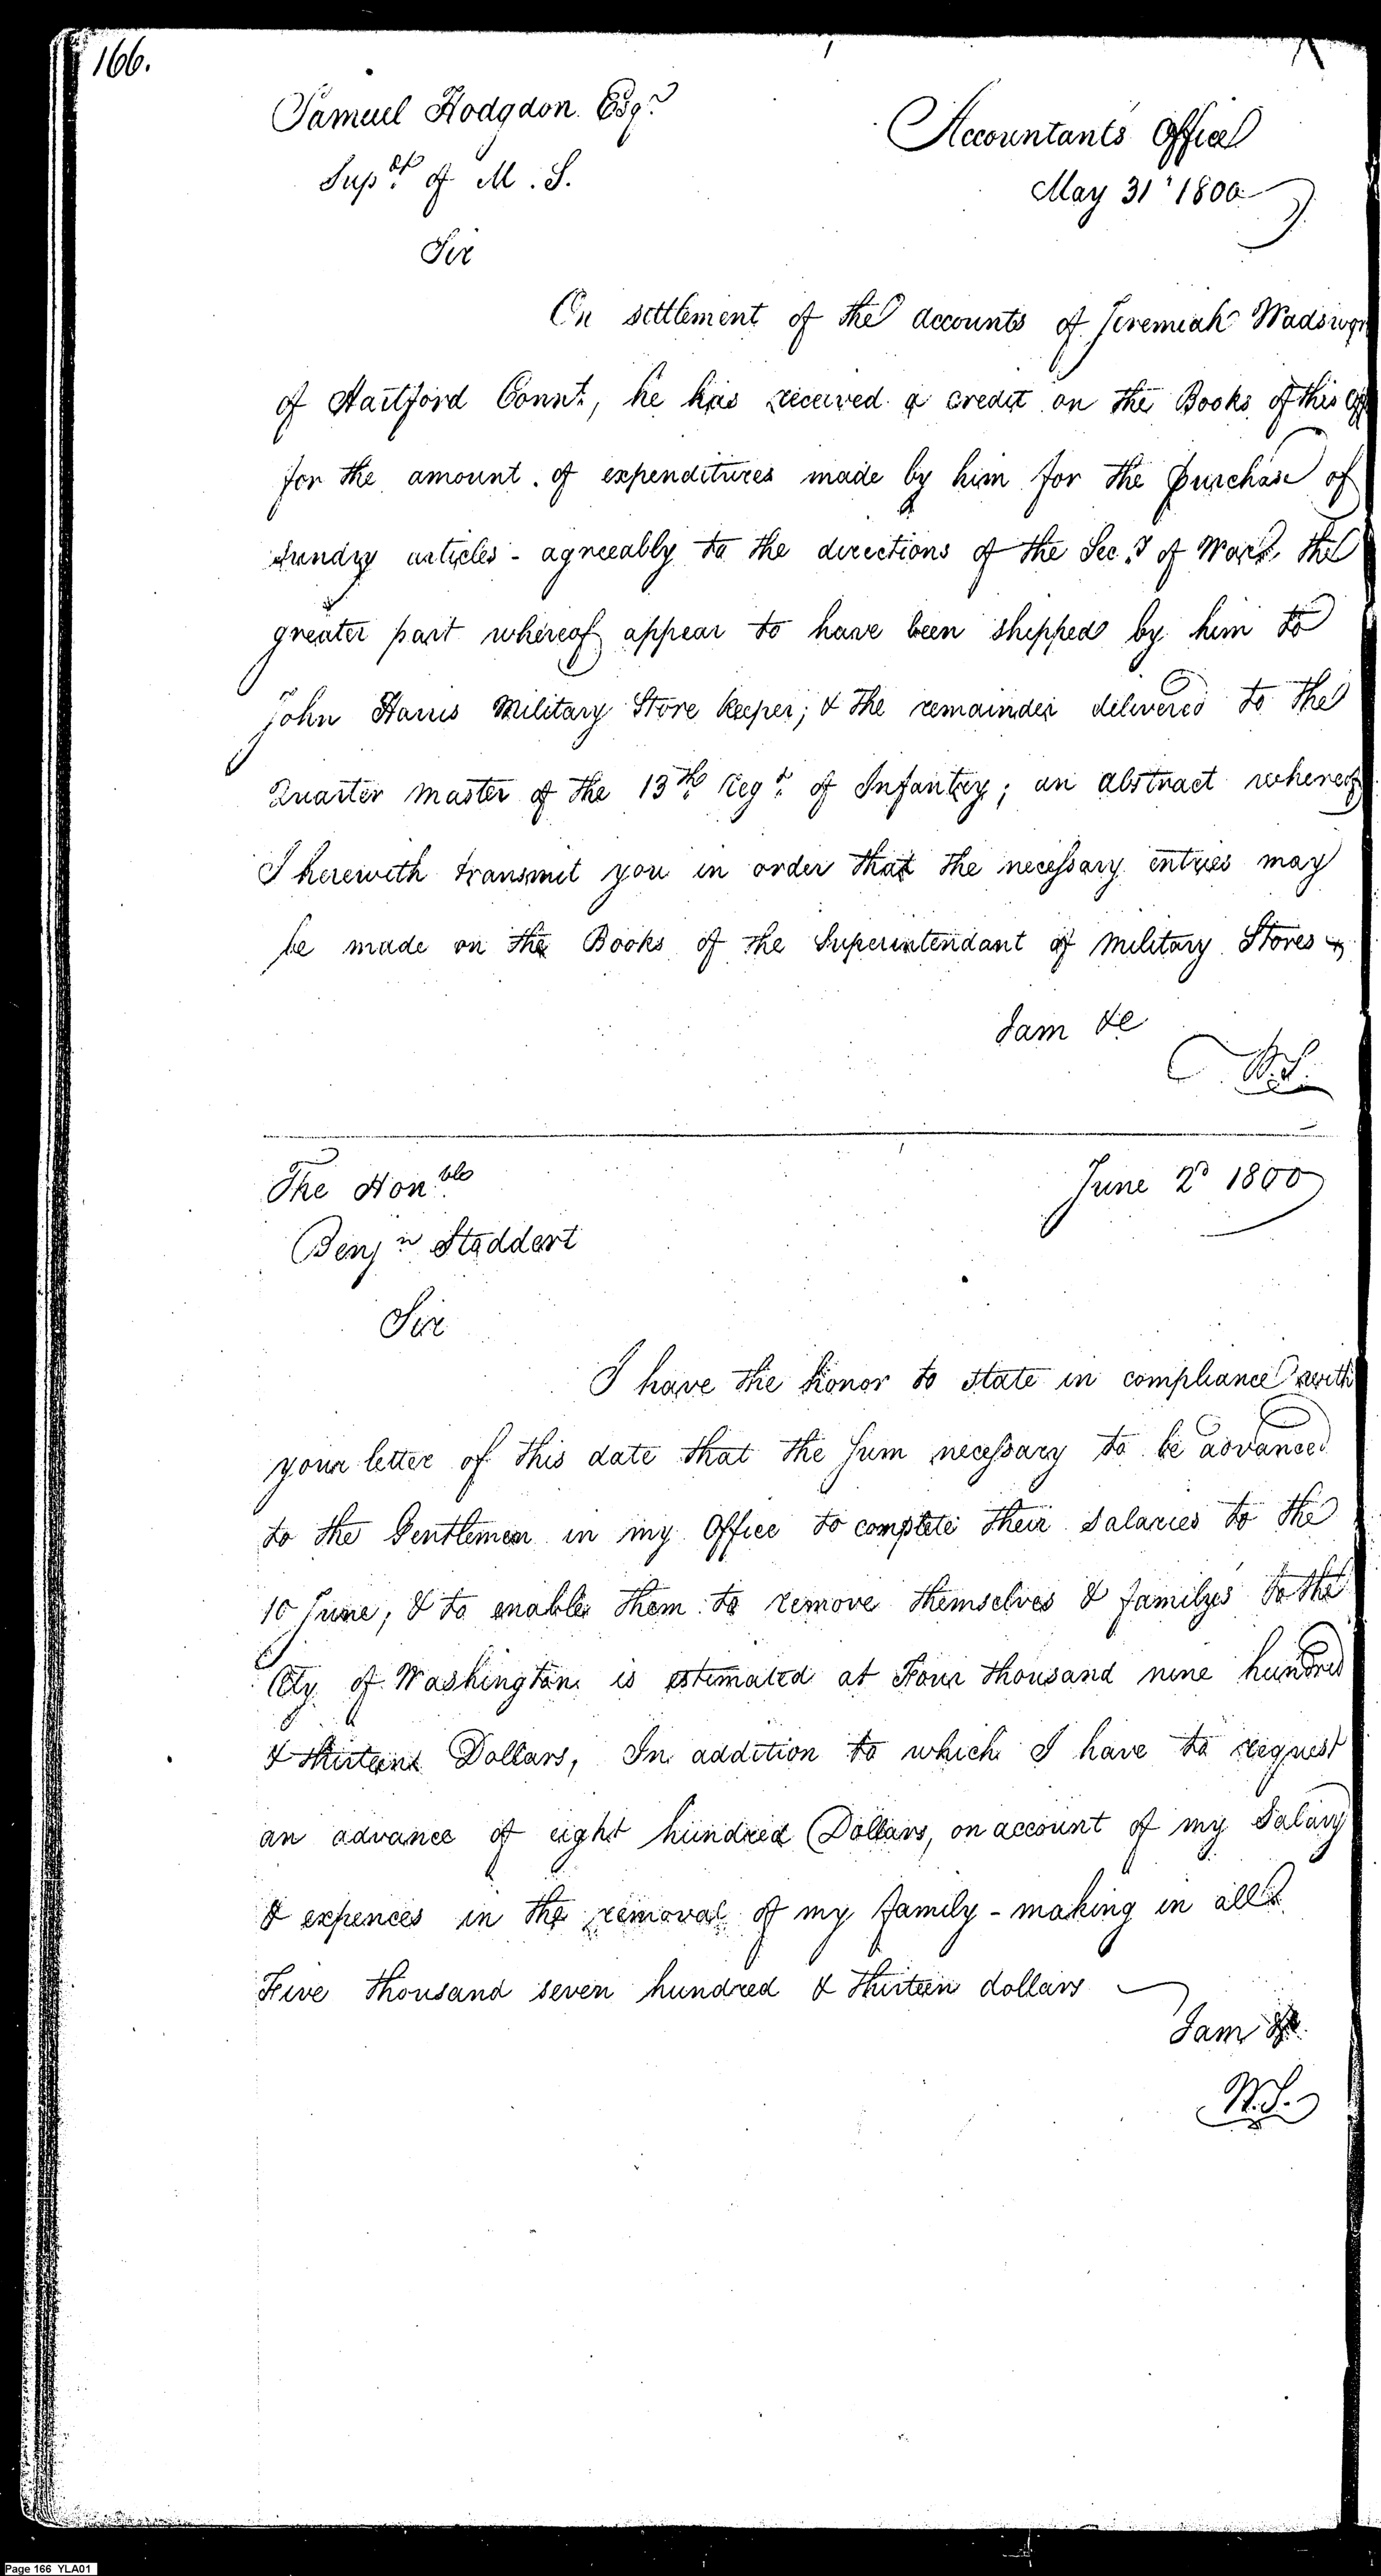 166.
Samuel Hodgdon. Esqr.
Supdt. of M. S.
Accountants Office
May 31st 1800
Sir
On settlement of the accounts of Jeremiah Wadswor
of Hartford Connt., he has received a credit on the Books of this Off
for the amount of expenditures made by him for the purchase of
sundry articles - agreeably to the directions of the Sec.y of War, the
greater part whereof appear to have been shipped by him to
John Harris Military Store keeper; & the remainder delivered to the
Quarter Master of the 13th. Regt. of Infantry; an abstract whereof
I herewith transmit you in order that the necessary entries may
be made on the Books of the Superintendant of Military Stores
I am &c
W.S.
The Honble
June 2d 1800
Benjn Stoddert
Sir
I have the honor to state in compliance with
your letter of this date that the Sum necessary to be advanced
to the Gentlemen in my Office to complete their Salaries to the
10 June, & to enable them to remove themselves & familys to the
City of Washington is estimated at Four thousand nine hundred
& thirteen Dollars, In addition to which I have to request
an advance of eight hundred Dollars, on account of my Salary
& expences in the removal of my family - making in all
Five thousand seven hundred & thirteen dollars
I am &c
W.S.
Page 166 YLA01